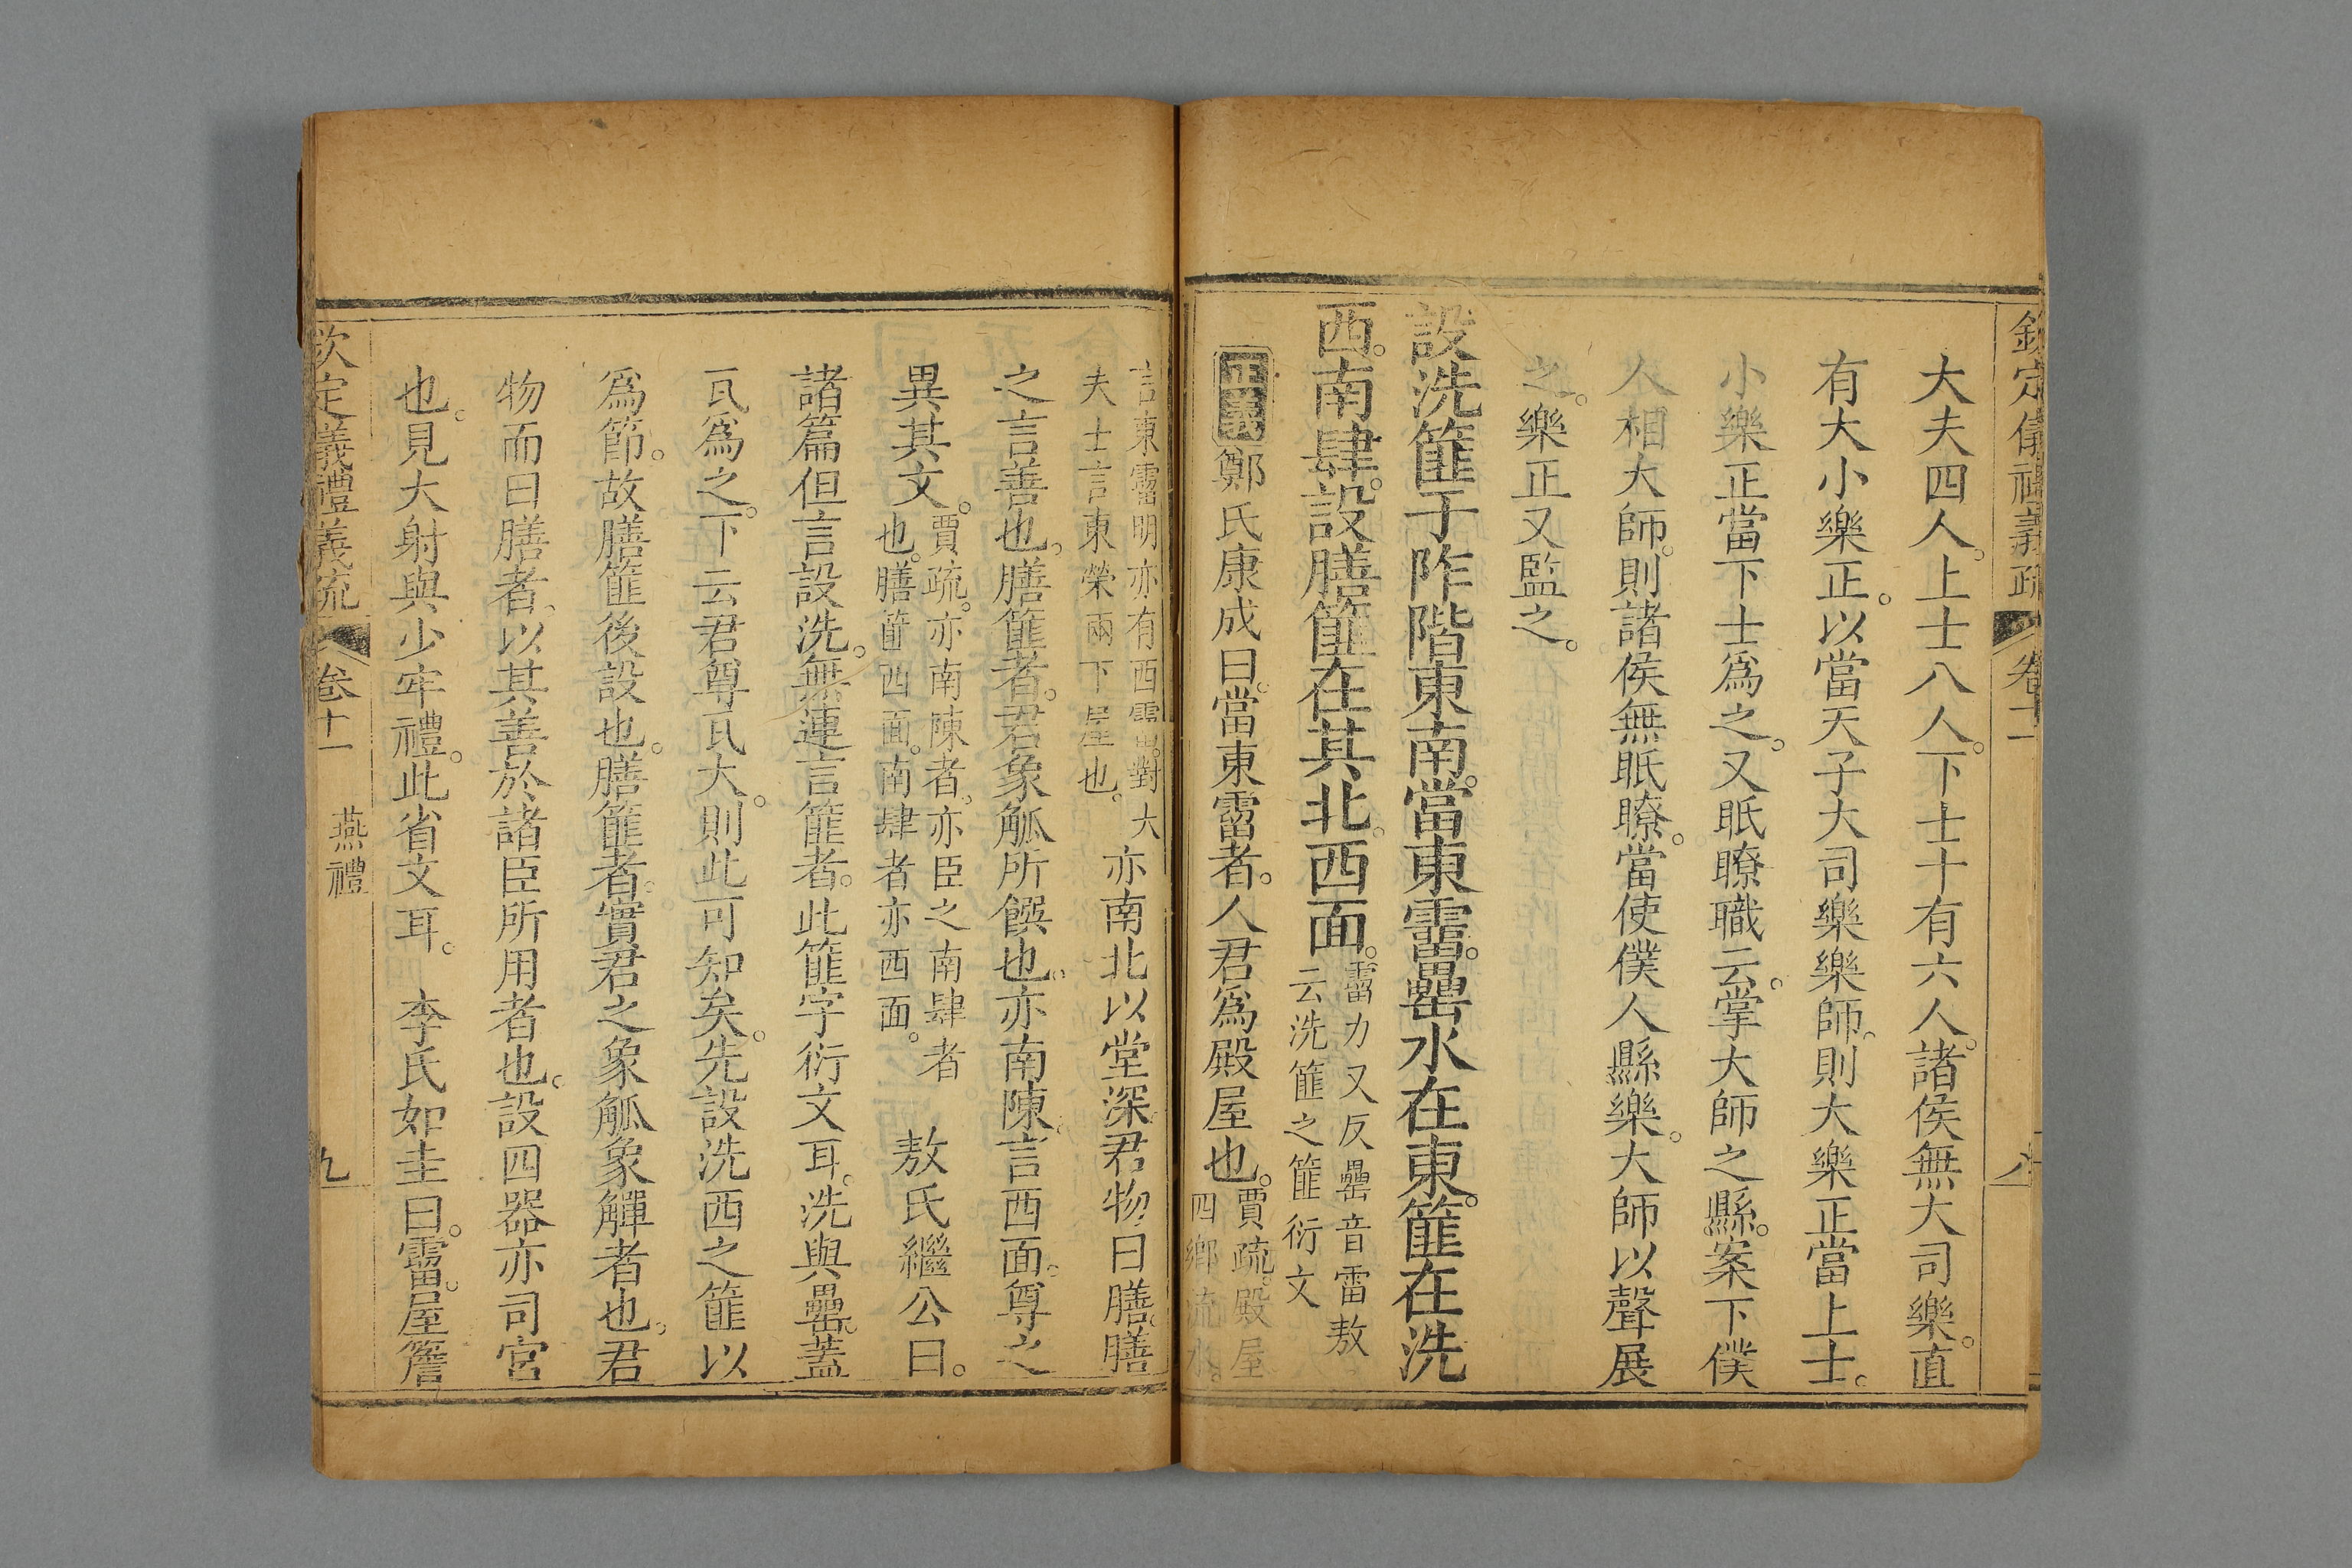 欽定儀禮義疏 卷十一 八
大夫四人。上士八人。下士十有六人。諸侯無大司樂。直
有大小樂正。以當天子大司樂樂師。則大樂正當上士。
小樂正當下士爲之。又眡瞭職云。掌大師之縣。案下僕
人相大師。則諸侯無眡瞭。當使僕人縣樂。大師以聲展
之。樂正又監之。
設洗篚于阼階東南。當東霤。罍水在東。篚在洗
西。南肆。設膳篚在其北。西面。
霤力又反罍音雷敖
云洗篚之篚衍文
正義鄭氏康成曰。當東霤者。人君爲殿屋也。
賈疏。殿屋
四鄉流水。
言東霤明亦有西霤。對大
夫士言東榮兩下屋也。
亦南北以堂深。君物曰膳。膳
之言善也。膳篚者。君象觚所饌也。亦南陳。言西面。尊之
異其文。
賈疏。亦南陳者。亦臣之南肆者
也。膳篚西面。南肆者亦西面。
敖氏繼公曰。
諸篇但言設洗。無連言篚者。此篚字衍文耳。洗與罍。蓋
瓦爲之。下云君尊瓦大。則此可知矣。先設洗西之篚以
爲節。故膳篚後設也。膳篚者。實君之象觚象觶者也。君
物而曰膳者。以其善於諸臣所用者也。設四器亦司宮
也。見大射與少牢禮。此省文耳。 李氏如圭曰。霤。屋簷
欽定義禮義疏 卷十一 燕禮 九